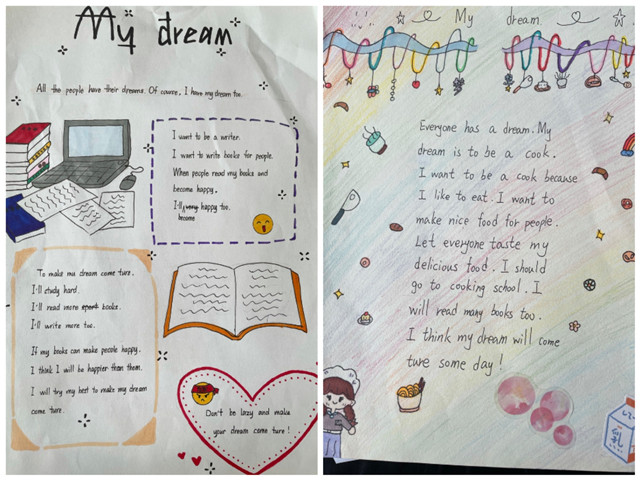 My dream
All the people have their dreams. Of course, I have my dream too.
I want to be a writer.
I want to write books for people.
When people read my books and
become happy.
I'll happy too.
become
To make ma dream come ture.
I'll study hard.
I'll read more books.
I'll write more too.
If my books can make people happy.
I think I will be happier than them.
I will try my best to make my dream
come ture.
Don't be lazy and make
your dream come ture!
My dream
Everyone has a dream. My
dream is to be a cook.
I want to be a cook because
I like to eat. I want to
make nice food for people.
Let everyone taste my
delicious food. I should
go to cooking school. I
will read many books too.
I think my dream will come
true some day!
乳